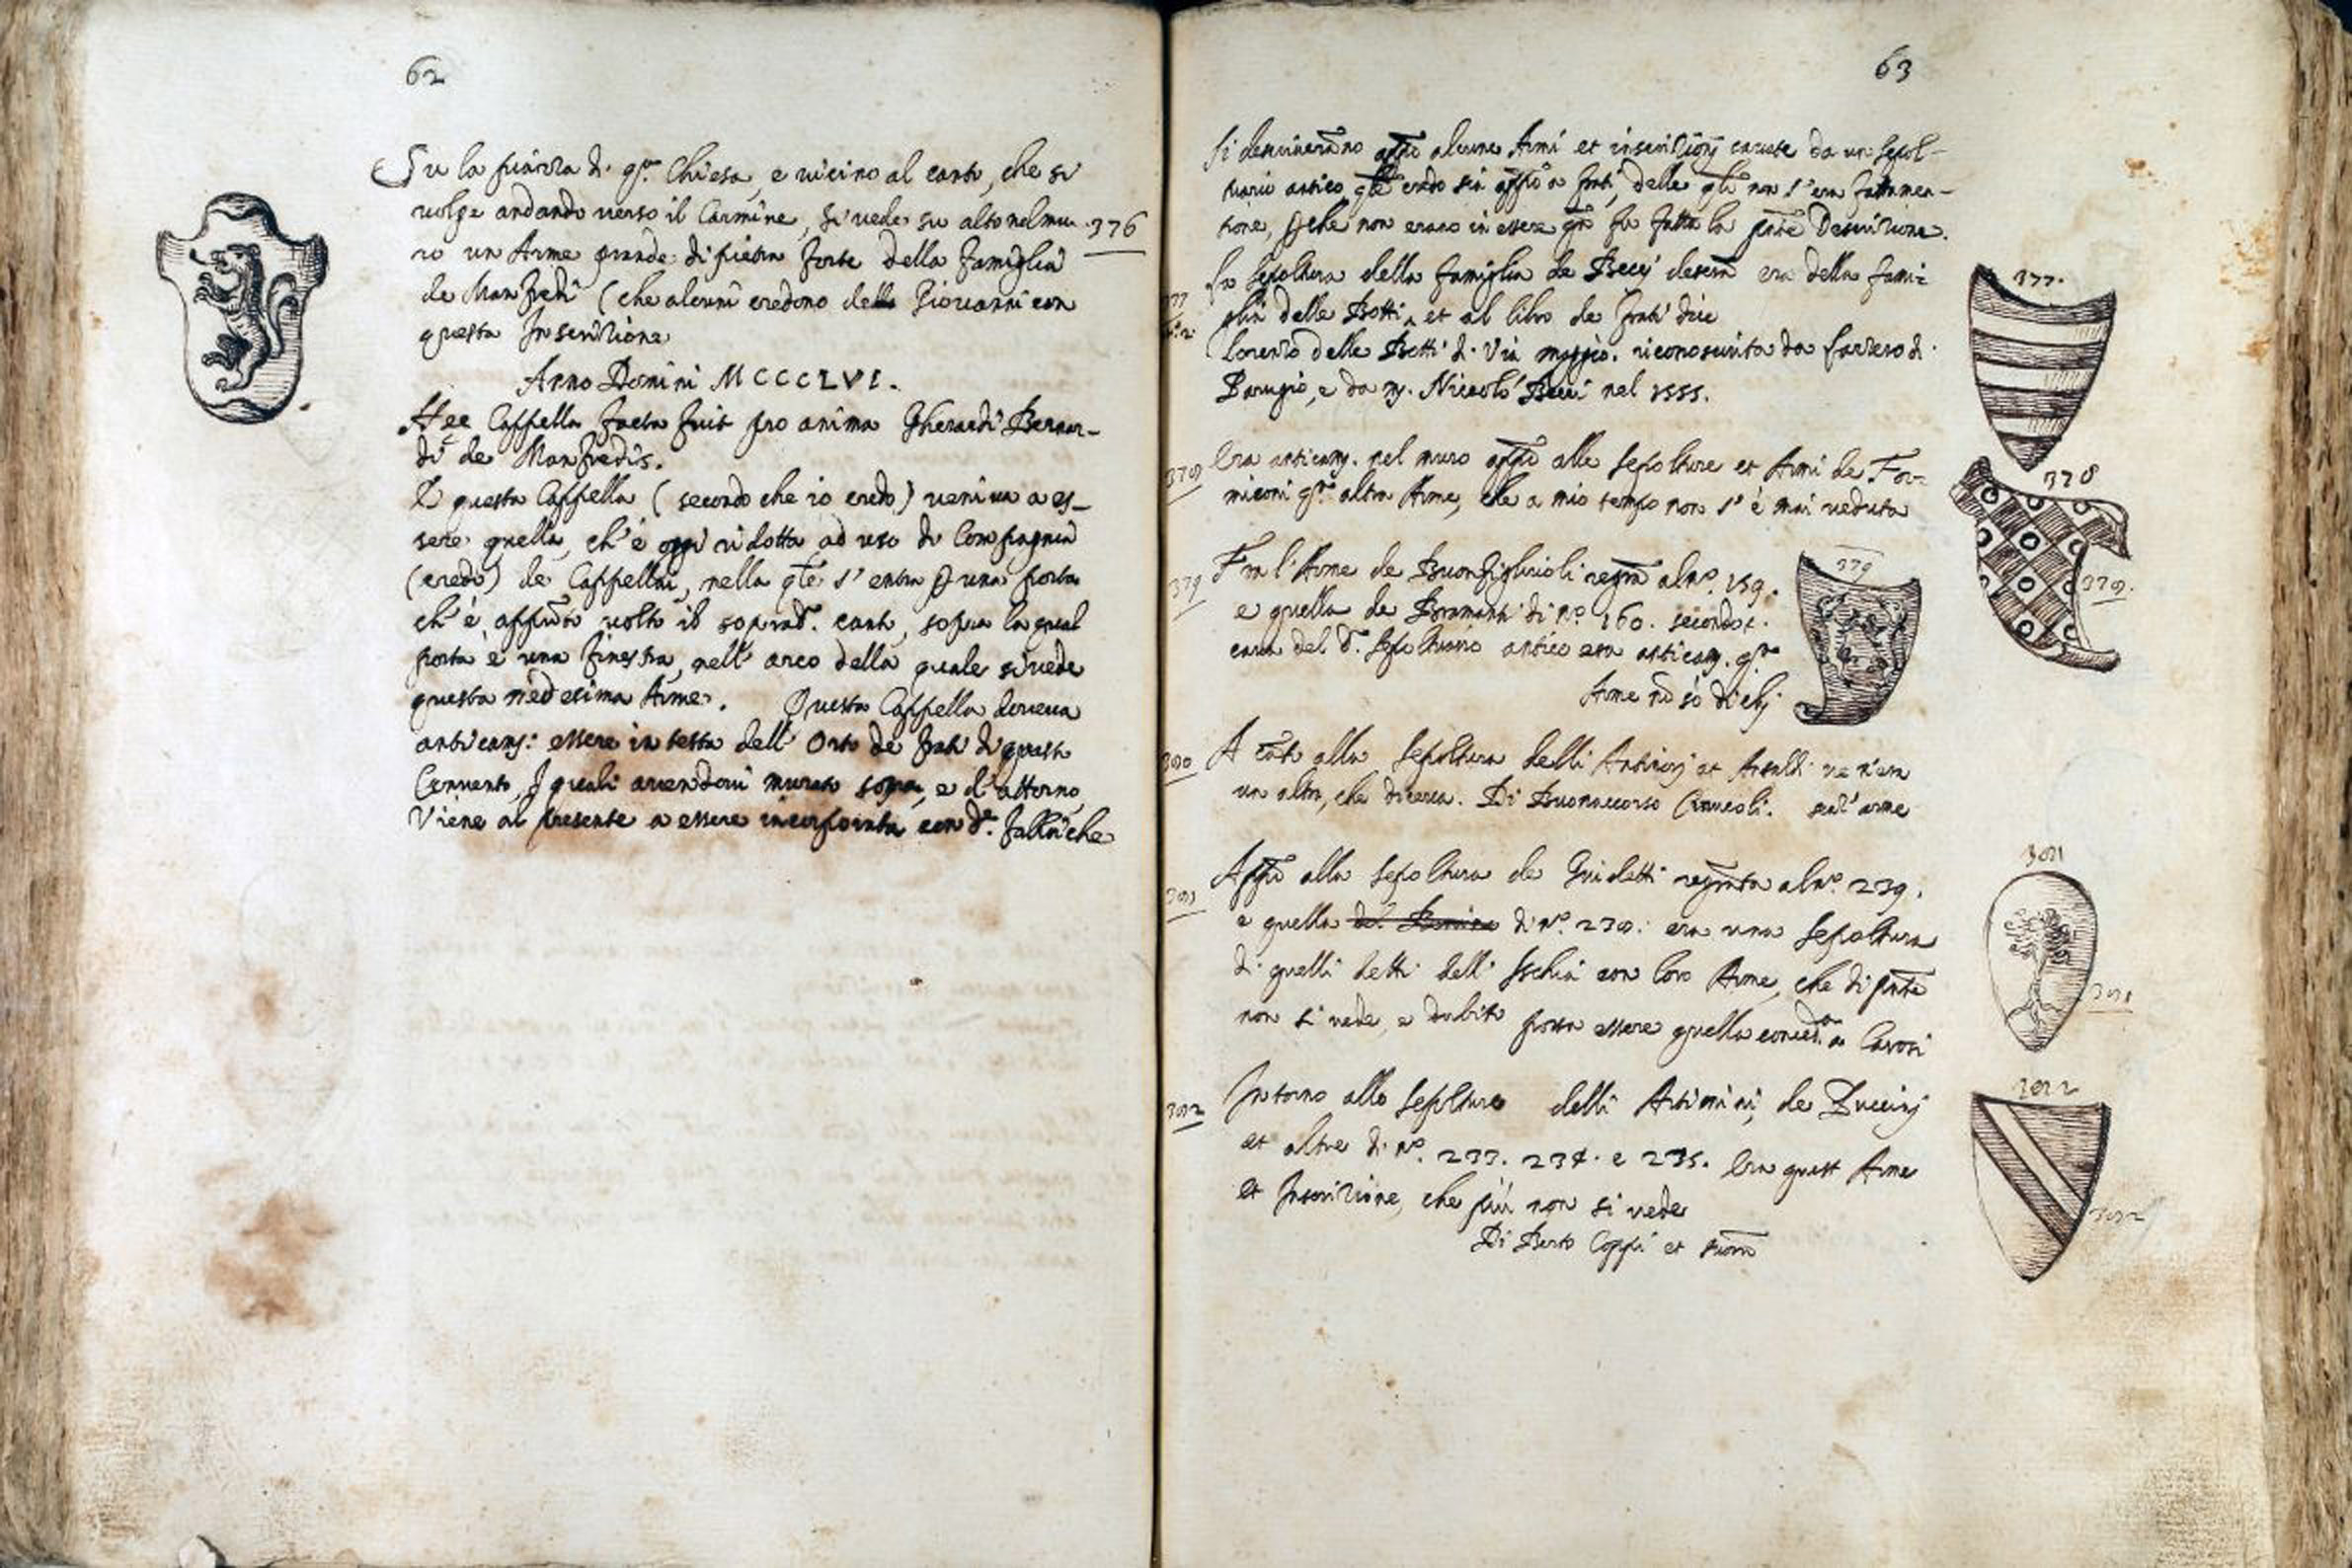 62
Su la piazza di q.ta Chiesa, e vicino al canto, che si
volge andando verso il Carmine, si vede su alto nel mu- 376
ro un Arme grande di pietra forte della Famiglia
de Manfredi (che alcuni credono della Giovanni con
questa Inscrizione
Anno Domini MCCCLVI.
Hec Cappella facta fuit pro anima Gherardi Bernar-
di de Manfredis.
E questa Cappella (secondo che io credo) veniva a es-
sere quella, ch'è oggi ridotta ad uso di Compagnia
(credo) de Cappellai, nella qle s'entra p una porta
ch'è appunto volto il soprad. canto, sopra la qual
porta è una finestra, nell'arco della quale si vede
questa medesima Arme. Questa Cappella doveva
anticam: essere in testa dell'Orto de frati di questo
Convento, I quali avendovi murato sopra, e d'attorno,
Viene al presente a essere incorporata con d.a
63
Si descriveranno app.o alcune Armi et inscrizioni cavate da un Sepol-
tuario antico qle credo sia app.o a frati, delle qli non s'era fatta men-
tione, p che non erano in essere qn fu fatta la pnte Descrizione.
377
La Sepoltura della famiglia de Becci era della fami-
glia delle Botti, et al libro de frati dice
Lorenzo delle Botti di Via maggio. riconosciuta da
e da m. Niccolò Becci nel 1555.
377.
378
Era anticam. nel muro app.o alle Sepolture et Armi de For-
miconi q.ta altra Arme, che a mio tempo non s'è mai veduta
378
379
379.
Fra l'Arme de Buonfigliuoli regta al n.o 159.
e quella de Bramanti di n.o 160. secondo
cava del d. Sepoltuario antico era anticam. q.ta
Arme nō sò di chi
379
380
A cāto alla Sepoltura delli et Ansaldi ve n'era
un altra, che diceva. Di Buonaccorso senz'arme
381
App.o alla Sepoltura de Guidetti regtrata al n.o 239.
e quella di n.o 238. era una Sepoltura
di quelli detti dell'Ischia con loro Arme, che di pnte
non si vede, e dubito possa essere quella conced.a a
381
381
382
Intorno alle Sepolture delli Artimini, de Zuccini
et altre di n.o 233. 234. e 235. Era quest Arme
et Inscrizione, che più non si vede
Di Berto Coppi et suorū
382
382